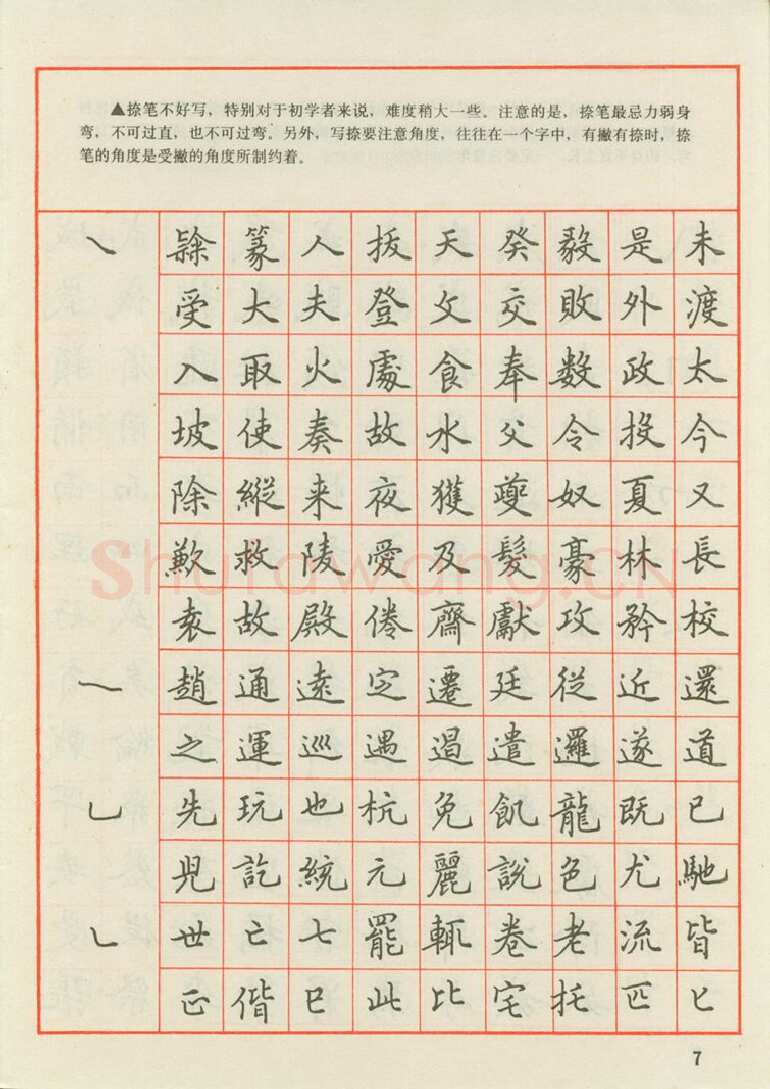 ▲捺笔不好写，特别对于初学者来说，难度稍大一些。注意的是，捺笔最忌力弱身
弯，不可过直，也不可过弯。另外，写捺要注意角度，往往在一个字中，有撇有捺时，捺
笔的角度是受撇的角度所制约着。
㇏ 篆 人 拔 天 癸 毅 是 未
受 大 夫 登 攵 交 敗 外 渡
入 取 火 處 食 奉 数 政 太
坡 使 奏 故 水 父 令 投 今
除 縱 来 夜 獲 夔 奴 夏 又
歉 救 陵 愛 及 髮 豪 林 長
袁 故 殿 倦 齋 獻 攻 矜 校
趙 通 遠 定 遷 廷 從 近 還
之 運 巡 遇 遏 遣 邏 遂 道
乚 先 玩 也 杭 免 飢 龍 既 已
兒 訖 統 元 麗 說 色 尤 馳
㇄ 世 亡 七 罷 輒 卷 老 流 皆
正 偕 巳 此 比 宅 托 匹 匕
Shufawang.CN
7